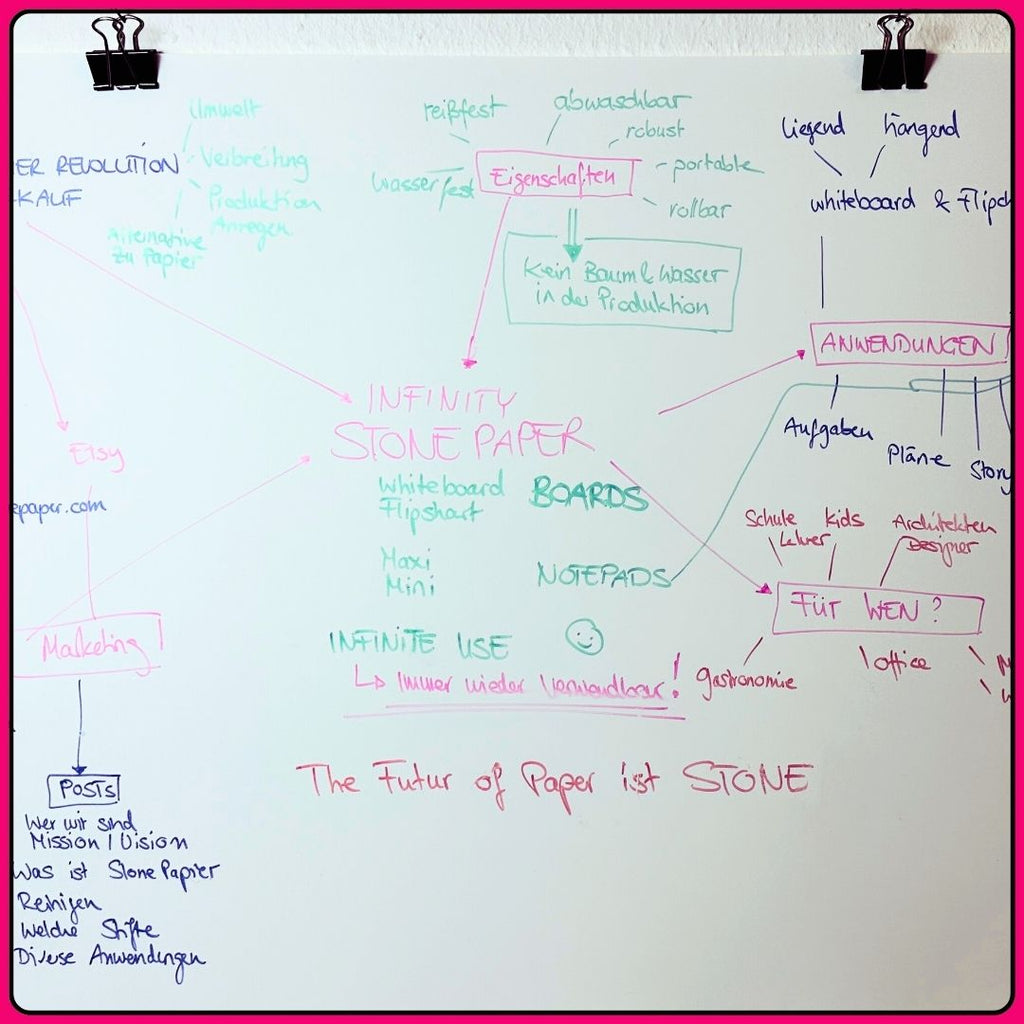 Umwelt
ER REVOLUTION
KAUF
Verbreitung
Produktion
Anregen
Alternative
zu Papier
reißfest
abwaschbar
robust
portable
rollbar
Wasserfest
Eigenschaften
Kein Baum & Wasser
in der Produktion
liegend
hängend
whiteboard & Flipch
ANWENDUNGEN
Aufgaben
Pläne
Story
INFINITY
STONE PAPER
Whiteboard
Flipshart
BOARDS
Maxi
Mini
NOTEPADS
INFINITE USE
↳ Immer wieder Verwendbar!
Etsy
epaper.com
Marketing
Schule
Lehrer
kids
Architekten
Designer
FÜR WEN?
gastronomie
office
The Futur of Paper ist STONE
POSTS
Wer wir sind
Mission / Vision
Was ist Stone Papier
Reinigen
Welche Stifte
Diverse Anwendungen